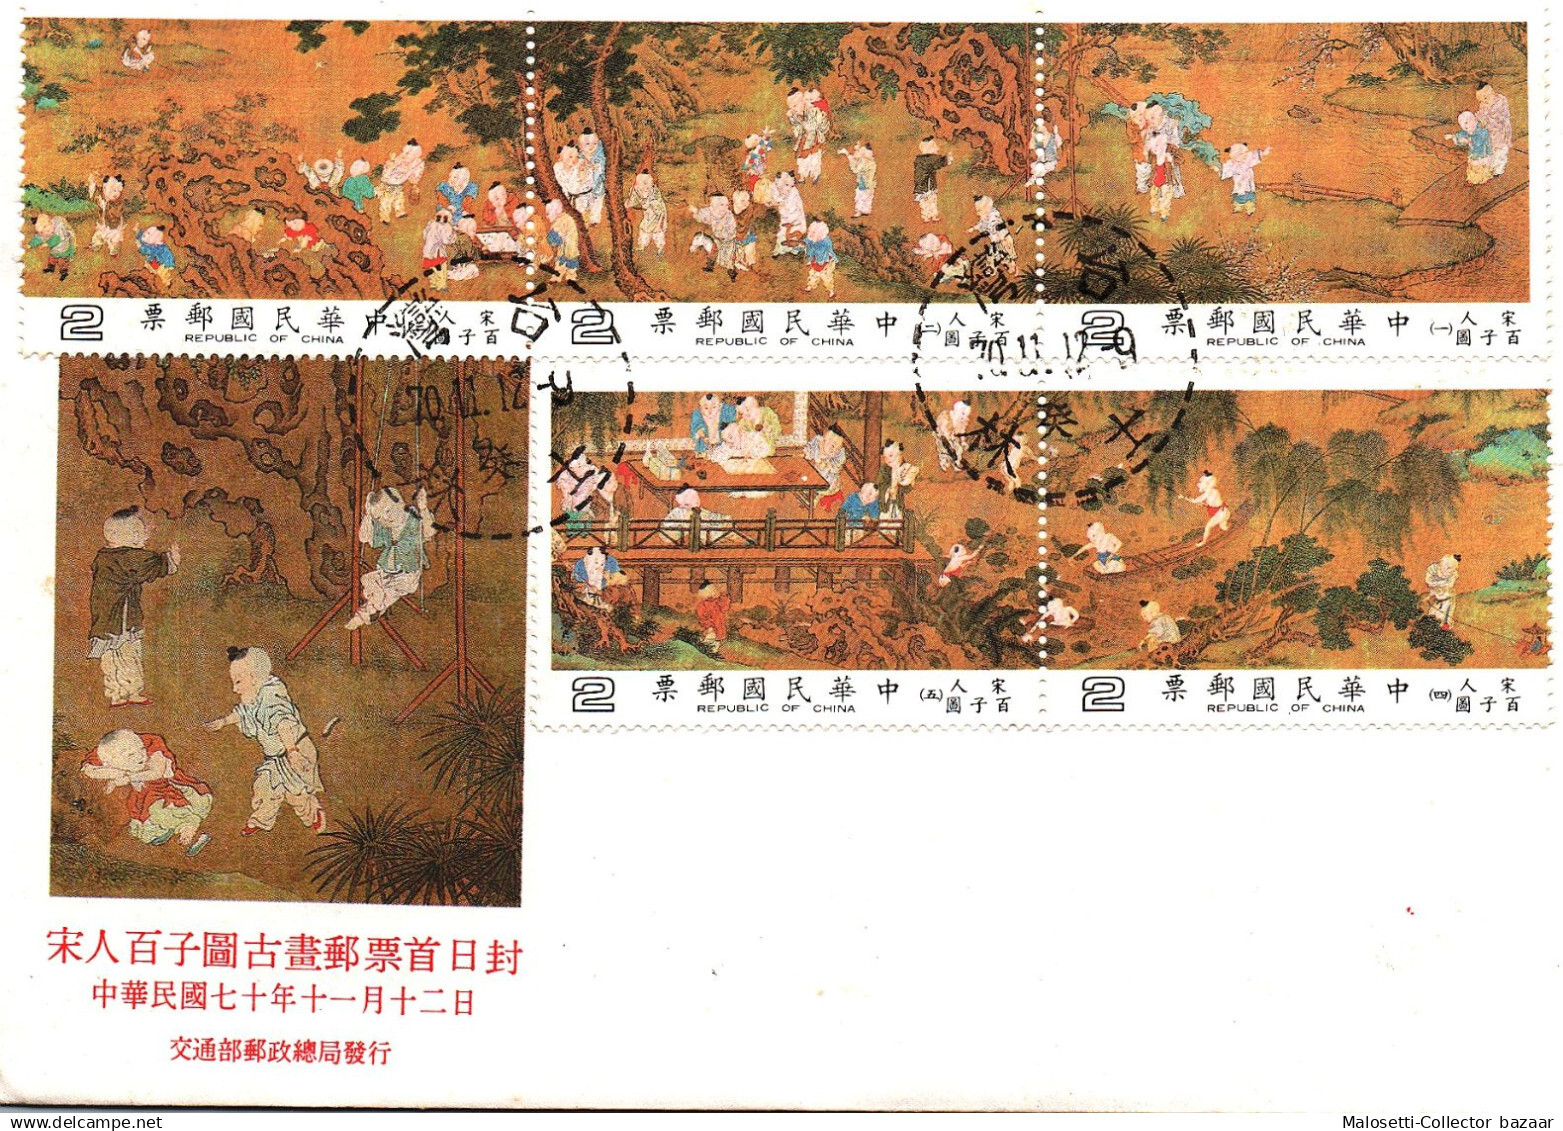 2 票郵國民華中
REPUBLIC OF CHINA
宋百
人子
2 票郵國民華中 (二)人圖 宋百子
REPUBLIC OF CHINA
2 票郵國民華中 (一)人子圖 宋百
REPUBLIC OF CHINA
70.11.12
70.11.12
2 票郵國民華中 (五)人子圖 宋百
REPUBLIC OF CHINA
2 票郵國民華中 (四)人子圖 宋百
REPUBLIC OF CHINA
宋人百子圖古畫郵票首日封
中華民國七十年十一月十二日
交通部郵政總局發行
Malosetti-Collector bazaar